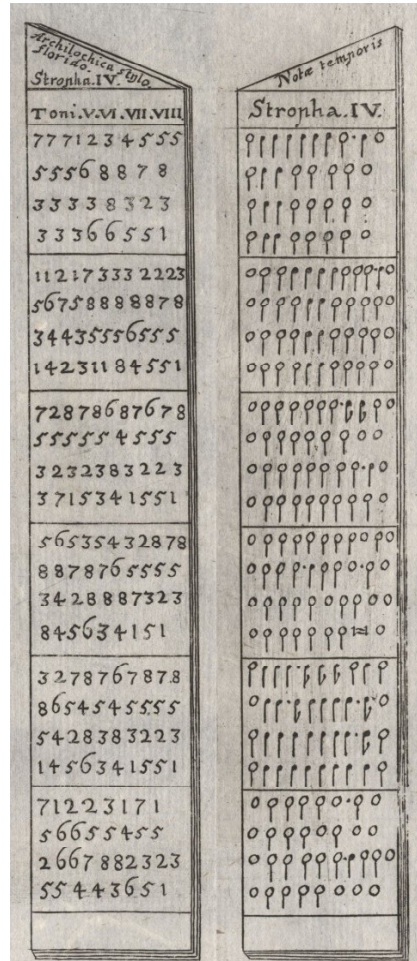 Archilochica stylo
florido.
Stropha.IV.
Toni.V.VI.VII.VIII
7 7 7 1 2 3 4 5 5 5
5 5 5 6 8 8 7 8
3 3 3 3 8 3 2 3
3 3 3 6 6 5 5 1
1 1 2 1 7 3 3 3 2 2 2 3
5 6 7 5 8 8 8 8 8 7 8
3 4 4 3 5 5 5 6 5 5 5
1 4 2 3 1 1 8 4 5 5 1
7 2 8 7 8 6 8 7 6 7 8
5 5 5 5 5 4 5 5 5
3 2 3 2 3 8 3 2 2 3
3 7 1 5 3 4 1 5 5 1
5 6 5 3 5 4 3 2 8 7 8
8 8 7 8 7 6 5 5 5 5
3 4 2 8 8 8 7 3 2 3
8 4 5 6 3 4 1 5 1
3 2 7 8 7 6 7 8 7.8
8 6 5 4 5 4 5 5 5 5
5 4 2 8 3 8 3 2 2 3
1 4 5 6 3 4 1 5 5 1
7 1 2 2 3 1 7 1
5 6 6 5 5 4 5 5
2 6 6 7 8 8 2 3 2 3
5 5 4 4 3 6 5 1
Notæ temporis
Stropha.IV.